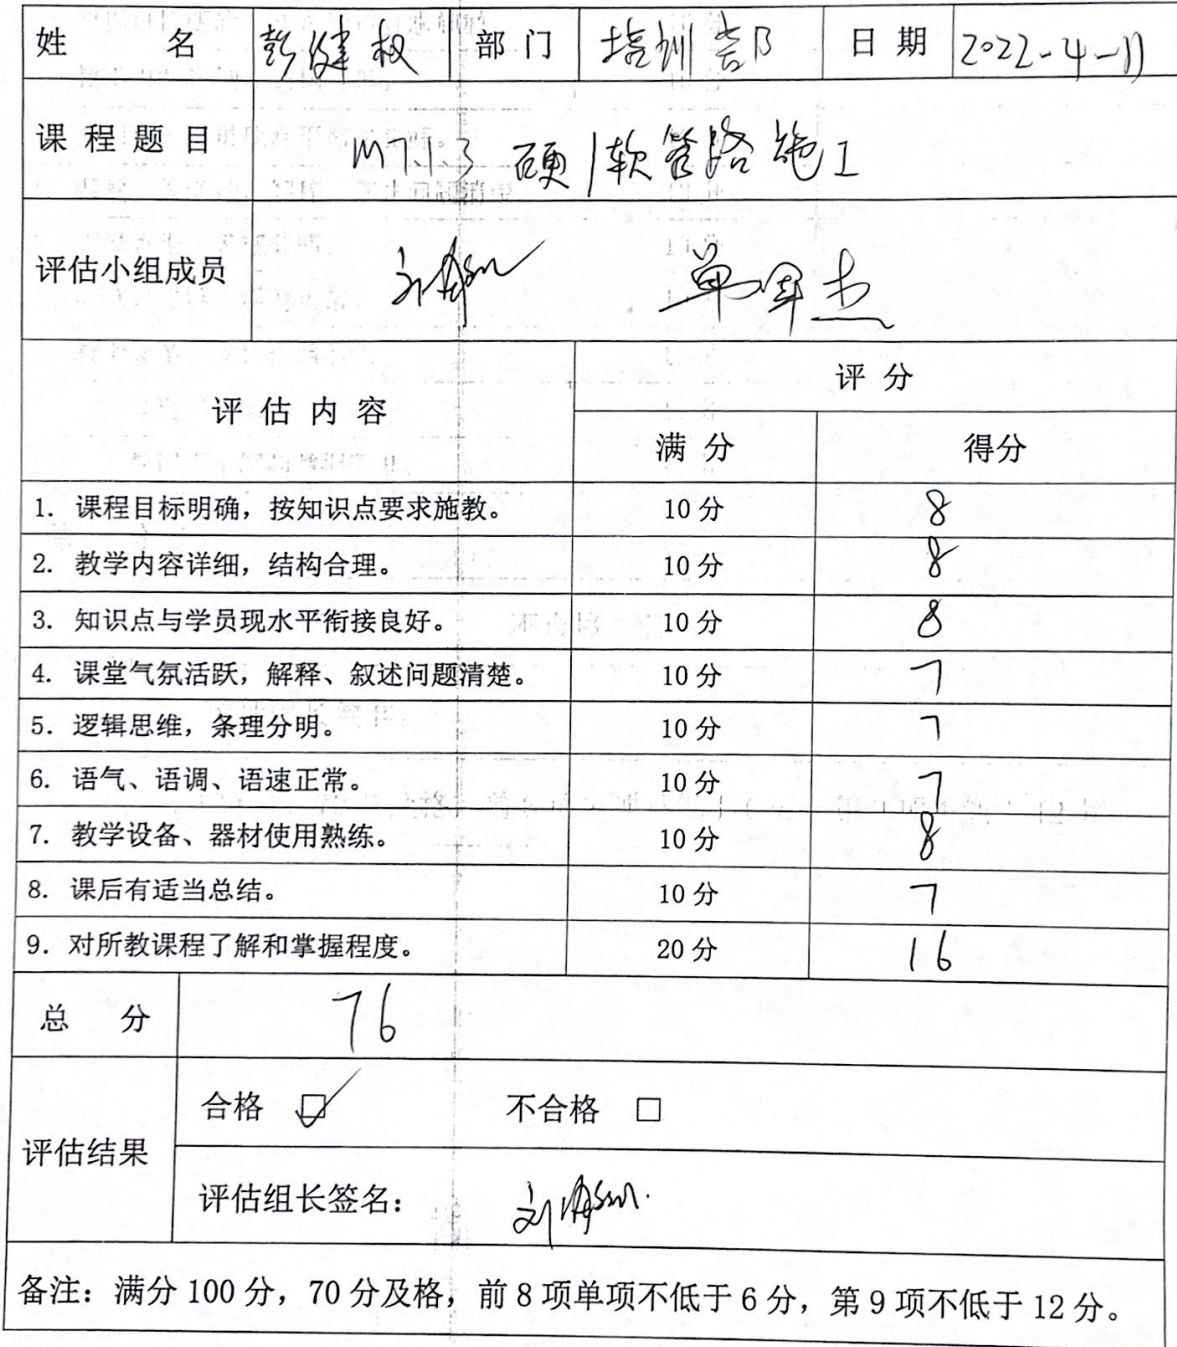 姓 名 彭健权 部门 培训部 日期 2022-4-11
课程题目 M7.1.3 硬/软管路施工
评估小组成员 单军杰
评估内容 评分
满分 得分
1. 课程目标明确，按知识点要求施教。 10分 8
2. 教学内容详细，结构合理。 10分 8
3. 知识点与学员现水平衔接良好。 10分 8
4. 课堂气氛活跃，解释、叙述问题清楚。 10分 7
5. 逻辑思维，条理分明。 10分 7
6. 语气、语调、语速正常。 10分 7
7. 教学设备、器材使用熟练。 10分 8
8. 课后有适当总结。 10分 7
9. 对所教课程了解和掌握程度。 20分 16
总 分 76
合格 ☑ 不合格 □
评估结果
评估组长签名：
备注：满分100分，70分及格，前8项单项不低于6分，第9项不低于12分。